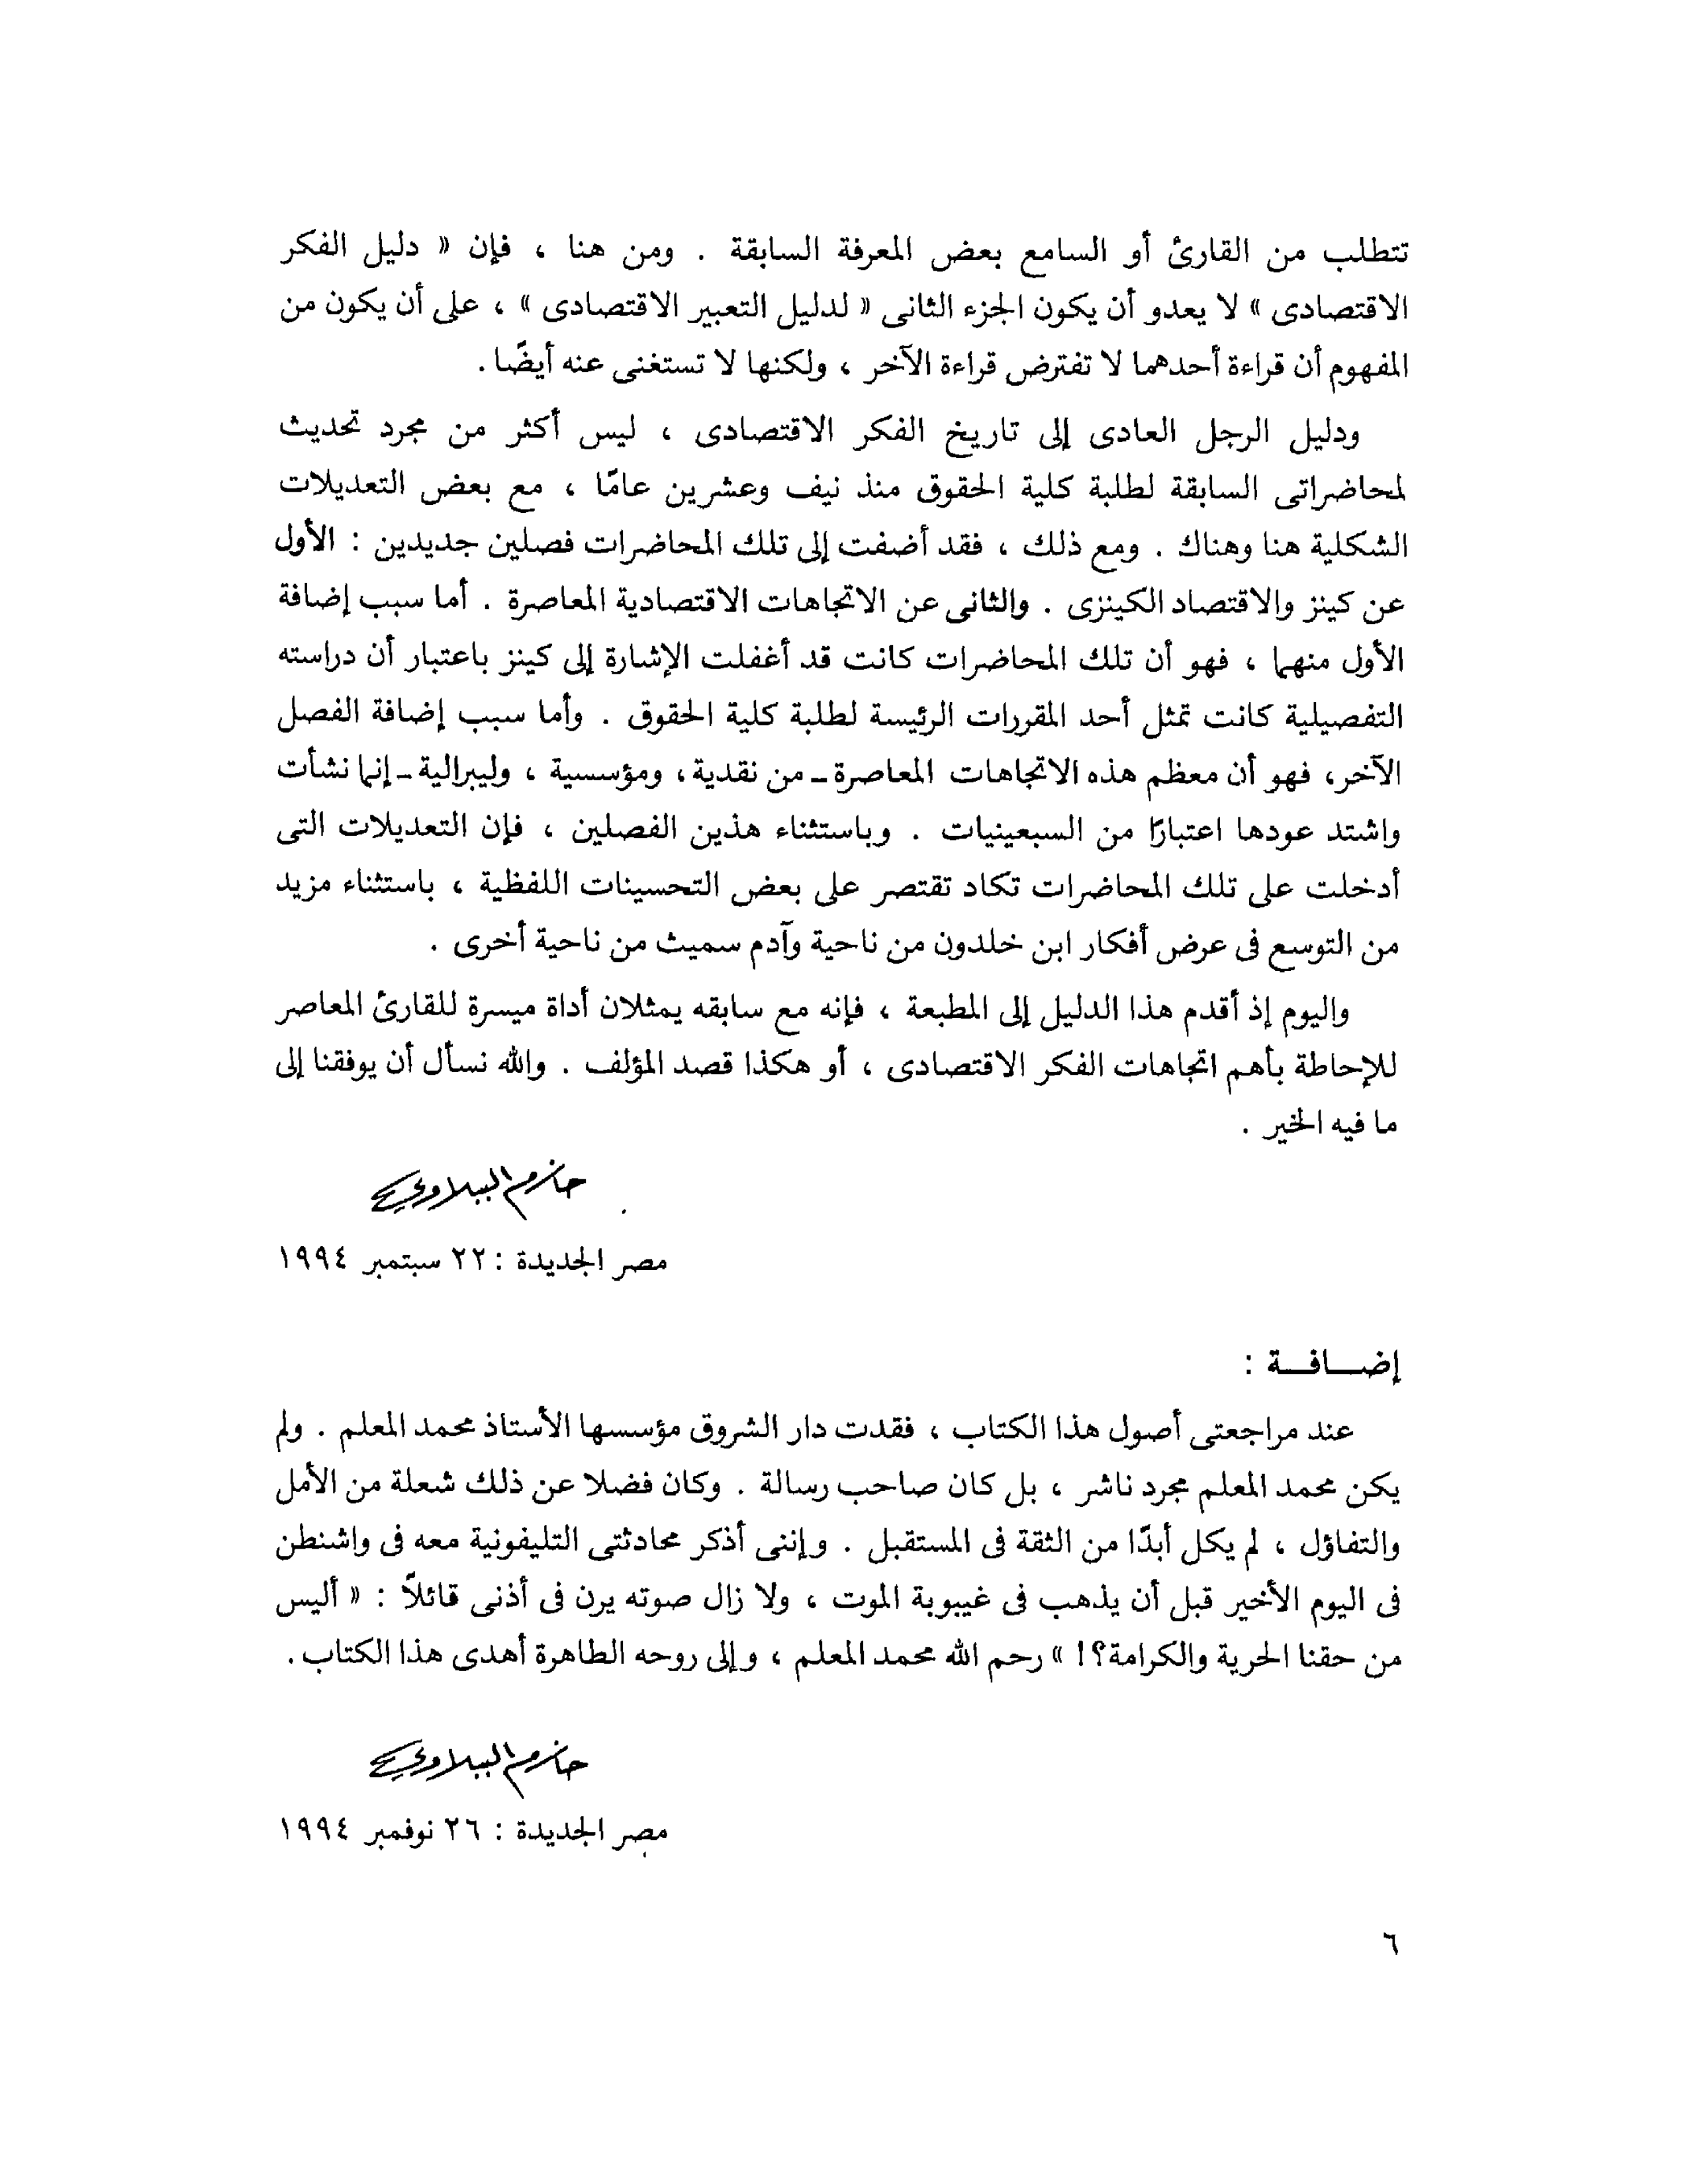 تتطلب من القارئ أو السامع بعض المعرفة السابقة . ومن هنا ، فإن « دليل الفكر
الاقتصادى » لا يعدو أن يكون الجزء الثانى « لدليل التعبير الاقتصادى » ، على أن يكون من
المفهوم أن قراءة أحدهما لا تفترض قراءة الآخر ، ولكنها لا تستغنى عنه أيضًا .
ودليل الرجل العادى إلى تاريخ الفكر الاقتصادى ، ليس أكثر من مجرد تحديث
لمحاضراتى السابقة لطلبة كلية الحقوق منذ نيف وعشرين عامًا ، مع بعض التعديلات
الشكلية هنا وهناك . ومع ذلك ، فقد أضفت إلى تلك المحاضرات فصلين جديدين : الأول
عن كينز والاقتصاد الكينزى . والثانى عن الاتجاهات الاقتصادية المعاصرة . أما سبب إضافة
الأول منهما ، فهو أن تلك المحاضرات كانت قد أغفلت الإشارة إلى كينز باعتبار أن دراسته
التفصيلية كانت تمثل أحد المقررات الرئيسة لطلبة كلية الحقوق . وأما سبب إضافة الفصل
الآخر، فهو أن معظم هذه الاتجاهات المعاصرة ـ من نقدية، ومؤسسية ، وليبرالية ـ إنما نشأت
واشتد عودها اعتبارًا من السبعينيات . وباستثناء هذين الفصلين ، فإن التعديلات التى
أدخلت على تلك المحاضرات تكاد تقتصر على بعض التحسينات اللفظية ، باستثناء مزيد
من التوسع فى عرض أفكار ابن خلدون من ناحية وآدم سميث من ناحية أخرى .
واليوم إذ أقدم هذا الدليل إلى المطبعة ، فإنه مع سابقه يمثلان أداة ميسرة للقارئ المعاصر
للإحاطة بأهم اتجاهات الفكر الاقتصادى ، أو هكذا قصد المؤلف . والله نسأل أن يوفقنا إلى
ما فيه الخير .
حازم الببلاوي
مصر الجديدة : ٢٢ سبتمبر ١٩٩٤
إضـــافــة :
عند مراجعتى أصول هذا الكتاب ، فقدت دار الشروق مؤسسها الأستاذ محمد المعلم . ولم
يكن محمد المعلم مجرد ناشر ، بل كان صاحب رسالة . وكان فضلا عن ذلك شعلة من الأمل
والتفاؤل ، لم يكل أبدًا من الثقة فى المستقبل . وإننى أذكر محادثتى التليفونية معه فى واشنطن
فى اليوم الأخير قبل أن يذهب فى غيبوبة الموت ، ولا زال صوته يرن فى أذنى قائلاً : « أليس
من حقنا الحرية والكرامة؟! » رحم الله محمد المعلم ، وإلى روحه الطاهرة أهدى هذا الكتاب .
حازم الببلاوي
مصر الجديدة : ٢٦ نوفمبر ١٩٩٤
٦